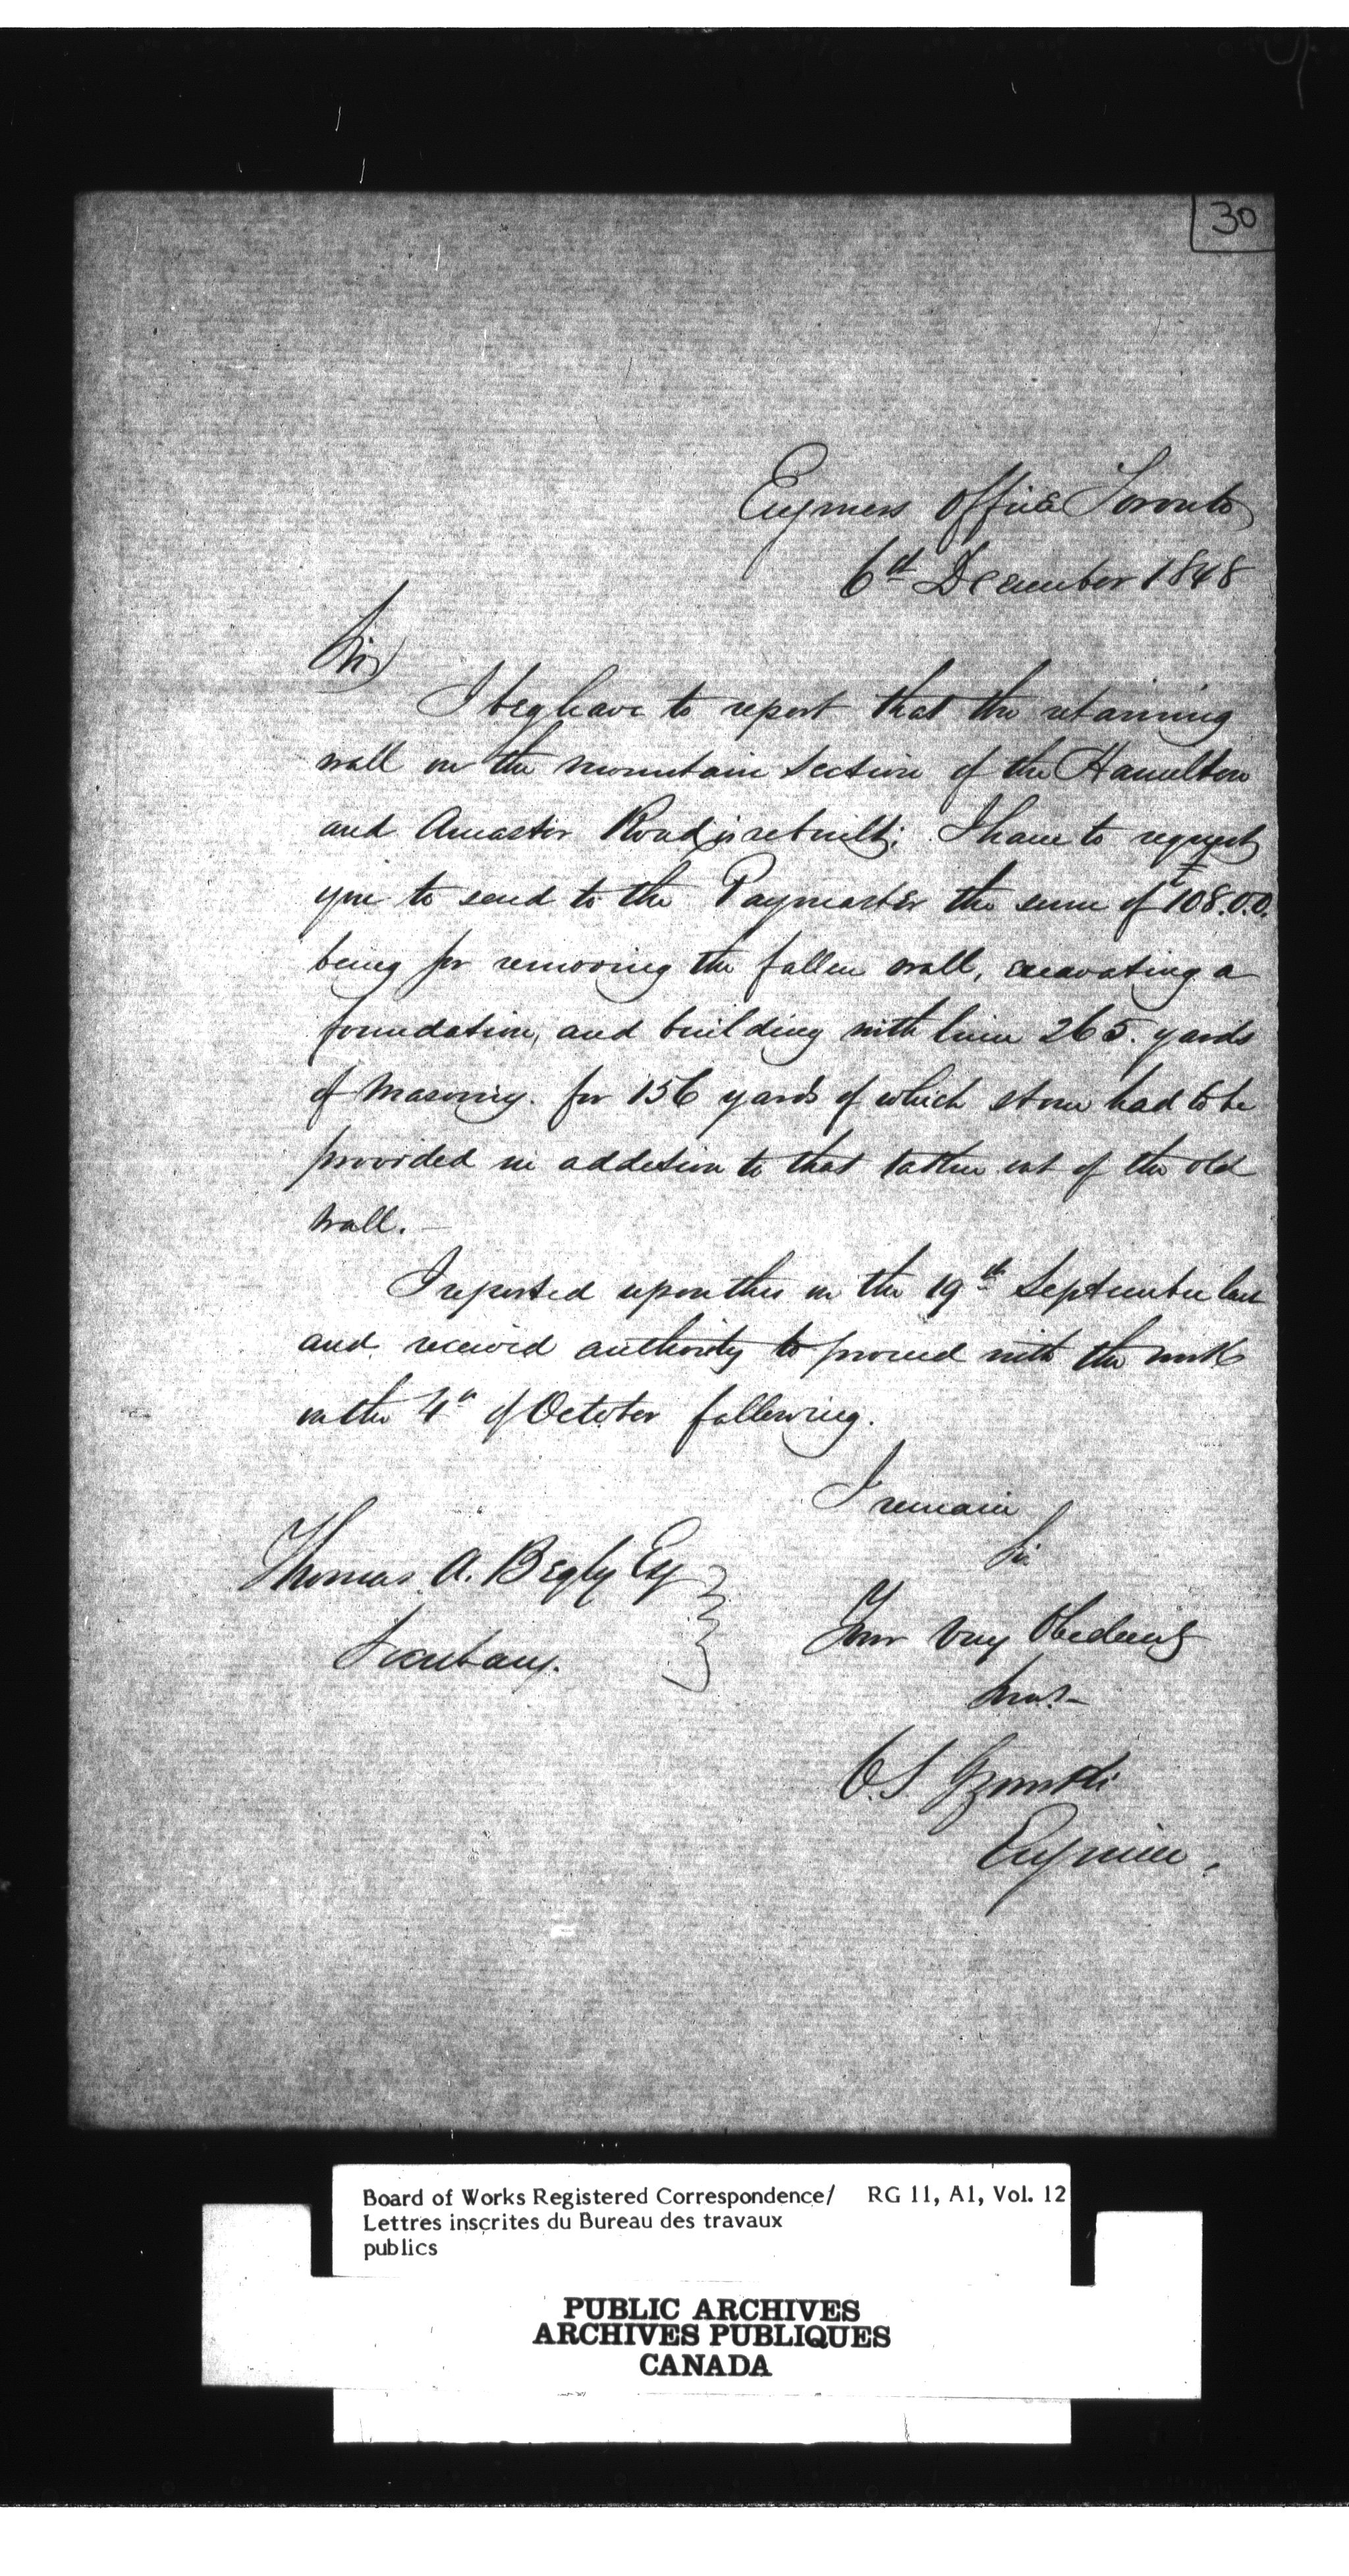 30
Engineers Office Toronto
6th December 1848
Sir
I beg leave to report that the retaining
wall on the mountain section of the Hamilton
and Ancaster Road is rebuilt; I have to request
you to send to the Paymaster the sum of £108.0.0.
being for removing the fallen wall, excavating a
foundation, and building with lime 265. yards
of Masonry. for 156 yards of which stone had to be
provided in addition to that taken out of the old
Wall. —
I reported upon this on the 19th September last
and received authority to proceed with the work
on the 4th of October following.
I remain
Sir
Your Very Obedient
Servt
C.S. Gzowski
Engineer.
Thomas A. Begly Esq
Secretary.
Board of Works Registered Correspondence/ RG 11, A1, Vol. 12
Lettres inscrites du Bureau des travaux
publics
PUBLIC ARCHIVES
ARCHIVES PUBLIQUES
CANADA